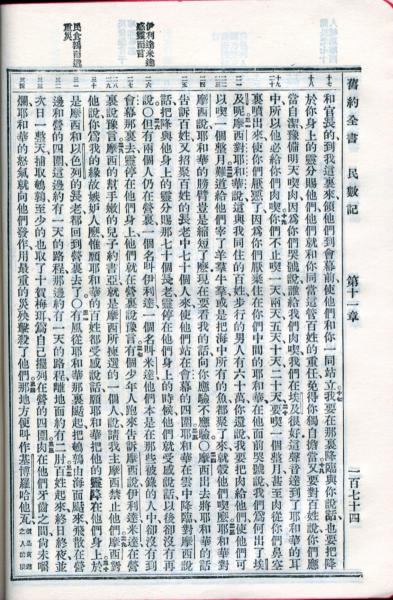 舊約全書 民數記 第十一章 一百七十四
和官長的到我這裏來領他們到會幕前使他們和你一同站立我要在那裏降臨與你說話也要把降
於你身上的靈分賜他們他們就和你同當這管百姓的重任免得你獨自擔當又要對百姓說你們應
當自潔豫備明天喫肉因爲你們哭號說誰給我們肉喫我們在埃及很好這聲音達到了耶和華的耳
中所以他必給你們肉喫你們不止喫一天兩天五天十天二十天要喫一個整月甚至肉從你們鼻空
裏噴出來使你們厭惡了因爲你們厭棄住在你們中間的耶和華在他面前哭號說我們爲何出了埃
及摩西對耶和華說這與我同住的百姓步行的男人有六十萬你還說我要把肉給他們使他們可
以喫一個整月難道給他們宰了羊羣牛羣或是把海中所有的魚都聚了來就彀他們喫麼耶和華對
摩西說耶和華的膀臂豈是縮短了麼現在要看我的話向你應驗不應驗○摩西出去將耶和華的話
告訴百姓又招聚百姓的長老中七十個人來使他們站在會幕的四圍耶和華在雲中降臨對摩西說
話把降與他身上的靈分賜那七十個長老靈停在他們身上的時候他們就受感說話以後卻沒有再
伊利達米達感靈而言
說○但有兩個人仍在營裏一個名叫伊利達一個名叫米達他們本是在那些被錄的人中卻沒有到
會幕那裏去靈停在他們身上他們就在營裏說豫言有個少年人跑來告訴摩西說伊利達米達在營
裏說豫言摩西的幫手嫩的兒子約書亞就是摩西所揀選的一個人說請我主摩西禁止他們摩西對
他說你爲我的緣故嫉妒人麼惟願耶和華的百姓都受感說話願耶和華把他的靈降在他們身上於
民食鶉而遭重災
是摩西和以色列的長老都回到營裏去了○有風從耶和華那裏颳起把鵪鶉由海面颳來飛散在營
邊和營的四圍這邊約有一天的路程那邊約有一天的路程離地面約有二肘百姓起來終日終夜並
次日一整天捕取鵪鶉至少的也取了十賀梅珥爲自己擺列在營的四圍肉在他們牙齒之間尚未嚼
爛耶和華的怒氣就向他們發作用最重的災殃擊殺了他們那地方便叫作基博羅哈他瓦